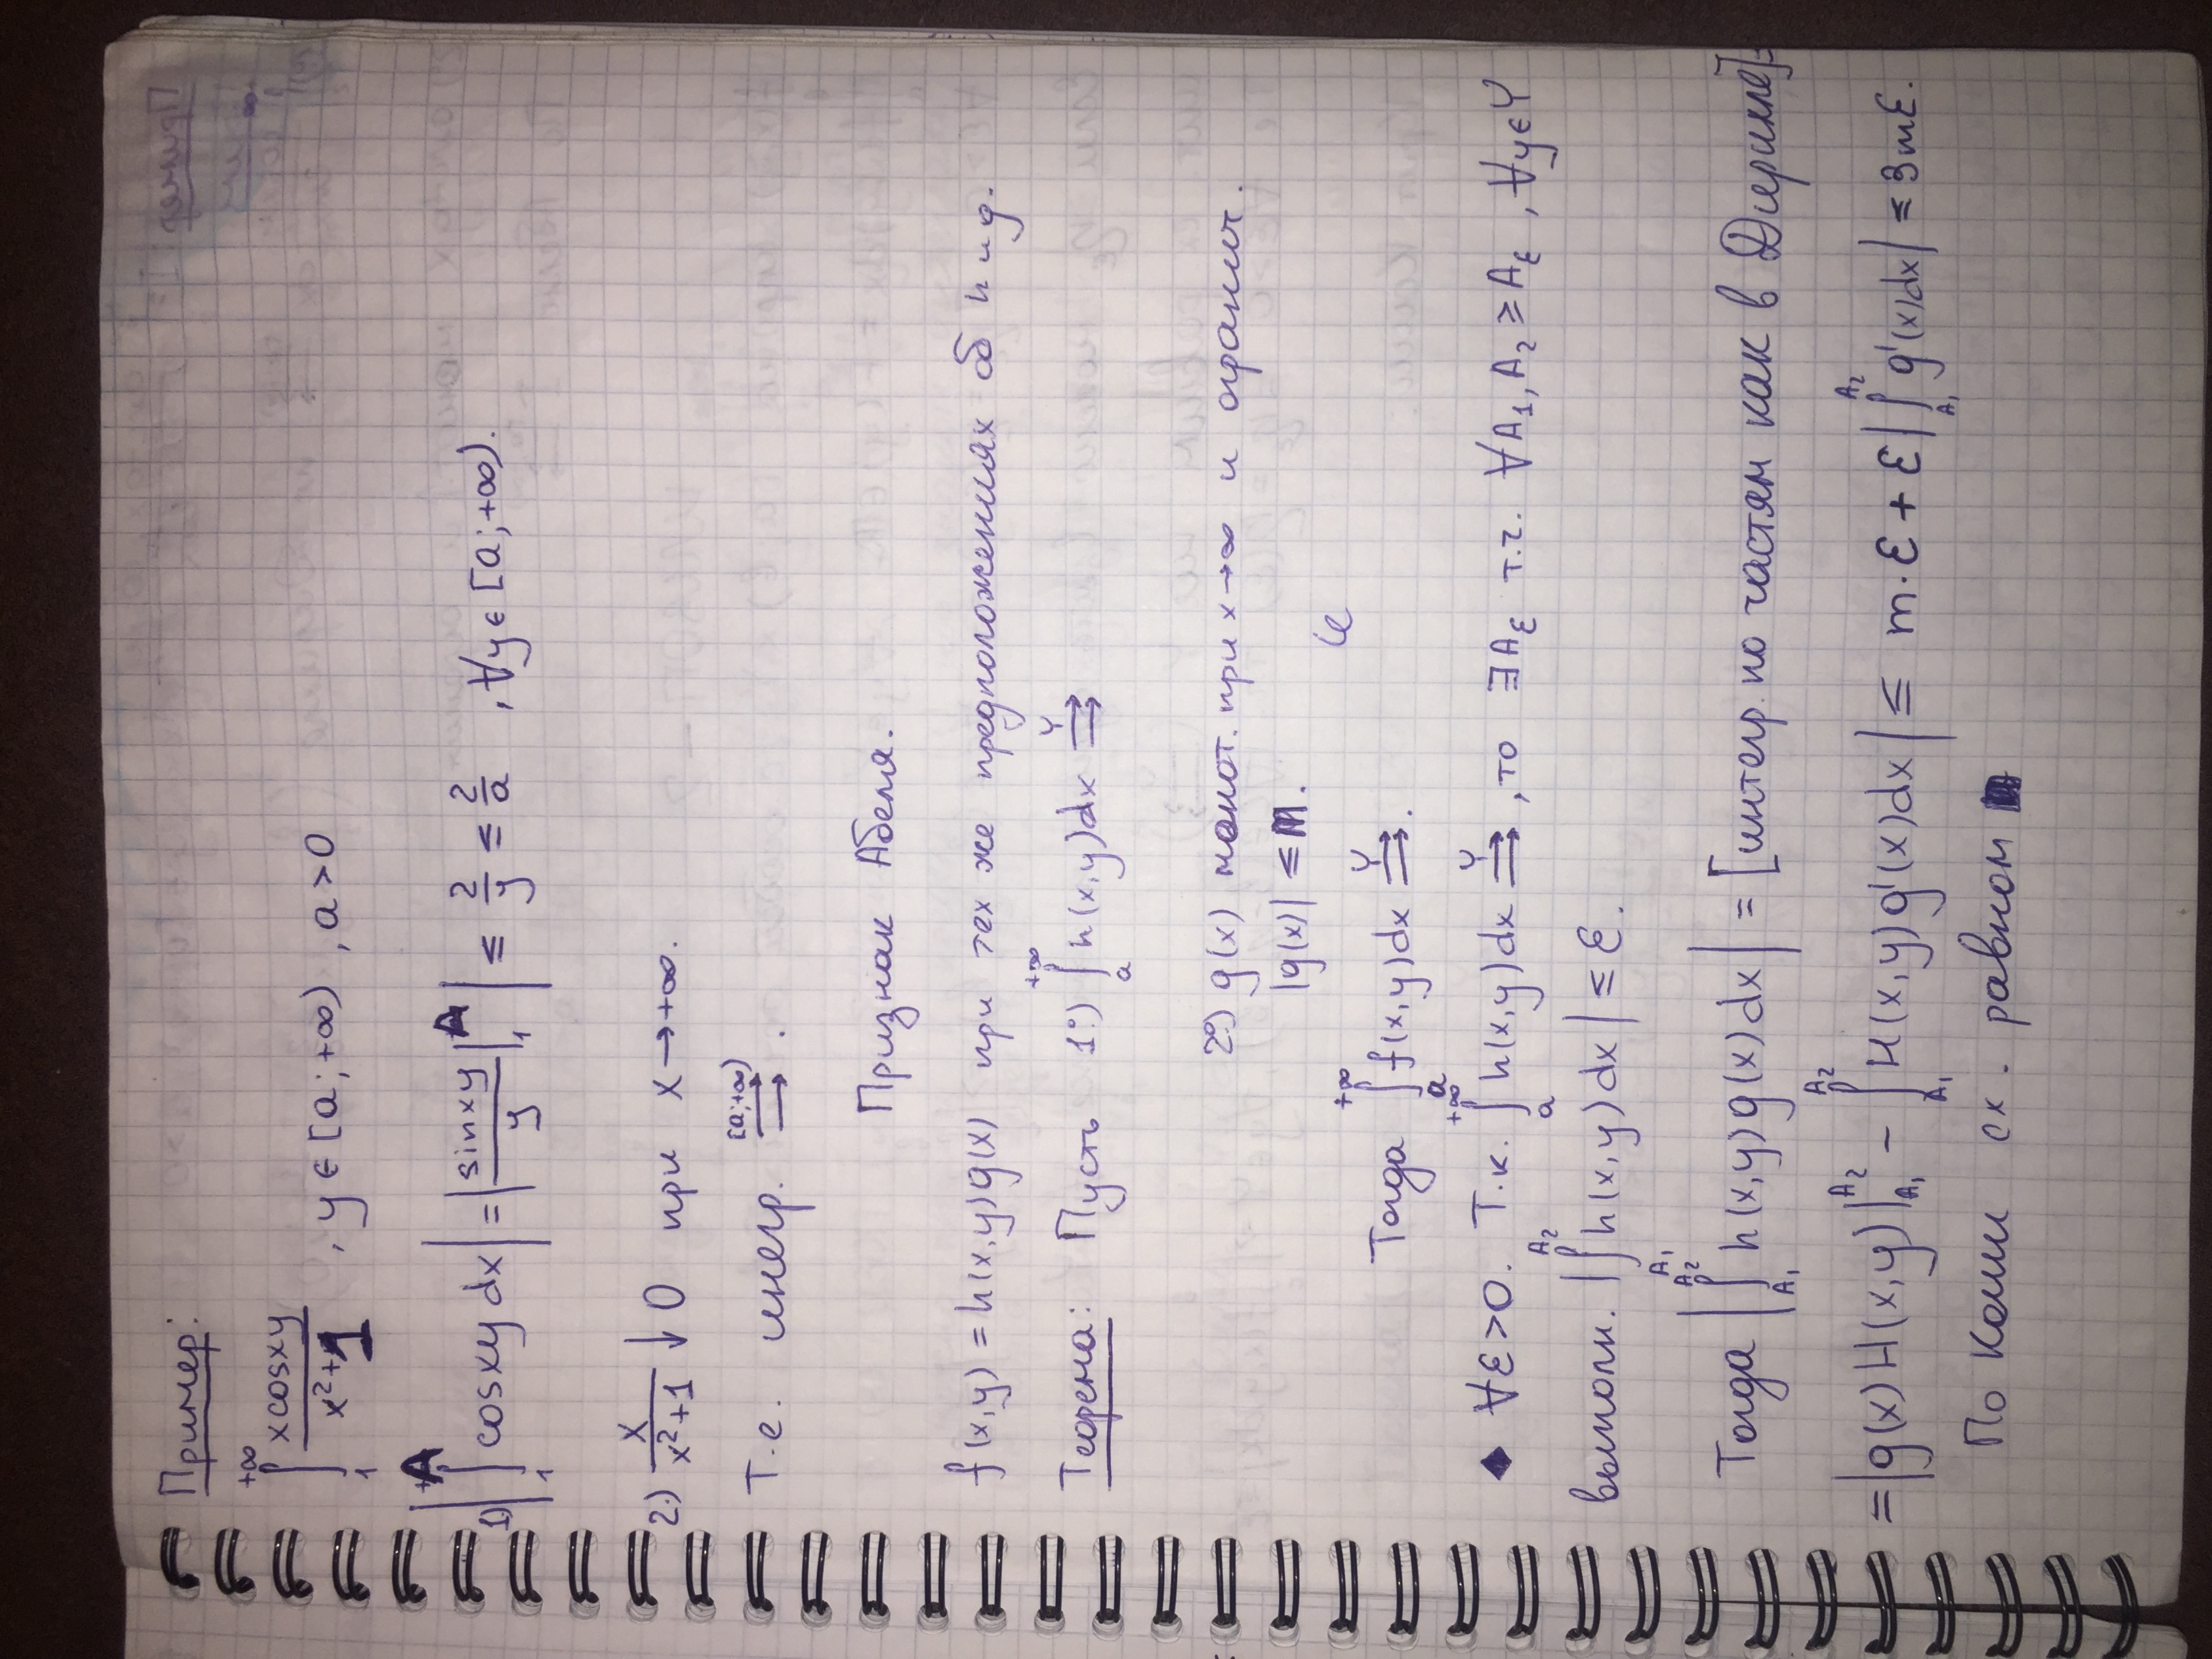 Пример:
∫₁^{+∞} xcosxy / (x²+1) , y ∈ [a; +∞) , a > 0
1) |∫₁^A cosxy dx| = | sinxy / y |₁^A | ≤ 2/y ≤ 2/a , ∀y ∈ [a; +∞).
2.) x / (x²+1) ↓ 0 при x → +∞.
Т.е. инегр. ⇉^{[a;+∞)} .
Признак Абеля.
f(x,y) = h(x,y)g(x) при тех же предположениях об h и g.
Теорема: Пусть 1°) ∫ₐ^{+∞} h(x,y)dx ⇉^Y
2°) g(x) монот. при x→∞ и огранич.
|g(x)| ≤ m.
Тогда ∫ₐ^{+∞} f(x,y)dx ⇉^Y.
◆ ∀ε>0. Т.к. ∫ₐ^{+∞} h(x,y)dx ⇉^Y , то ∃A_ε т.ч. ∀A₁, A₂ ≥ A_ε , ∀y∈Y
выполн. |∫_{A₁}^{A₂} h(x,y)dx| ≤ ε.
Тогда |∫_{A₁}^{A₂} h(x,y)g(x)dx| = [интегр. по частям как в Дирихле] =
= |g(x)H(x,y)|_{A₁}^{A₂} − ∫_{A₁}^{A₂} H(x,y)g'(x)dx| ≤ m·ε + ε|∫_{A₁}^{A₂} g'(x)dx| ≤ 3mε.
По Коши сх. равном